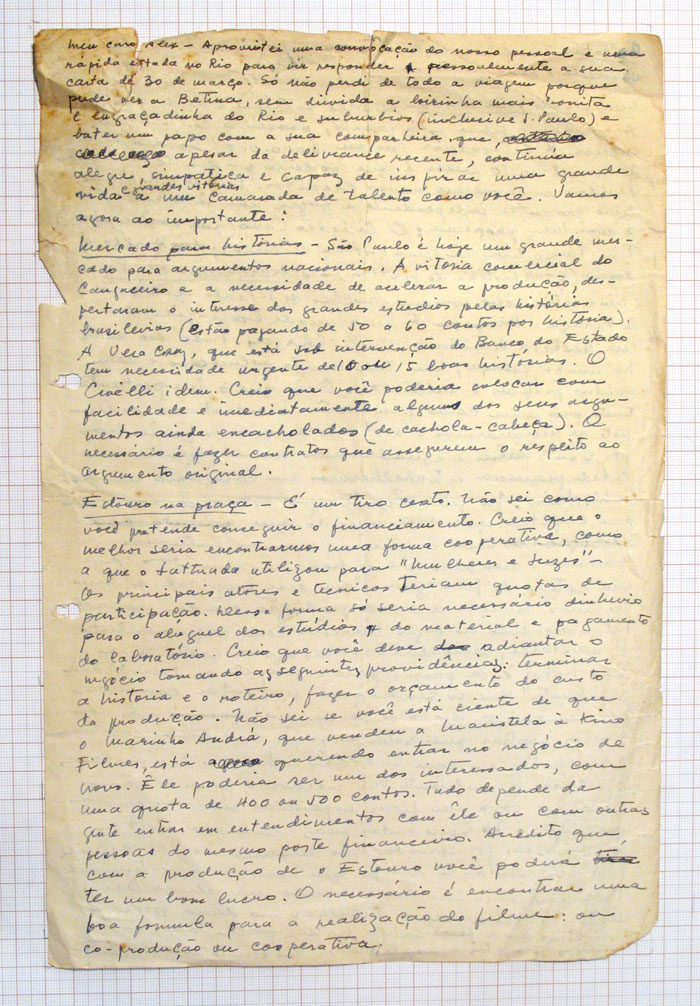 Meu caro Alex - Aproveitei uma convocação do nosso pessoal e uma
rápida estada no Rio para vir responder pessoalmente a sua
carta de 30 de março. Só não perdi de todo a viagem porque
pude ver a Betina, sem dúvida a coisinha mais bonita
e engraçadinha do Rio e suburbios (inclusive S. Paulo) e
bater um papo com a sua companheira que,
apesar da delivrance recente, continua
alegre, simpatica e capaz de inspirar uma grande
vida e grandes vitórias a um camarada de talento como você. Vamos
agora ao importante:
Mercado para histórias - São Paulo é hoje um grande mer-
cado para argumentos nacionais. A vitoria comercial do
Cangaceiro e a necessidade de acelerar a produção, des-
pertaram o interesse dos grandes estudios pelas histórias
brasileiras (estão pagando de 50 a 60 contos por história).
A Vera Cruz, que está sob intervenção do Banco do Estado
tem necessidade urgente de 10 ou 15 boas histórias. O
Civelli idem. Creio que você poderia colocar com
facilidade e imediatamente alguns dos seus argu-
mentos ainda encacholados (de cachola-cabeça). O
necessário é fazer contratos que assegurem o respeito ao
argumento original.
Estouro na praça - É um tiro certo. Não sei como
você pretende conseguir o financiamento. Creio que o
melhor seria encontrarmos uma forma cooperativa, como
a que o Latturada utilizou para "Mulheres e Luzes" -
Os principais atores e tecnicos teriam quotas de
participação. Dessa forma só seria necessário dinheiro
para o aluguel dos estúdios, do material e pagamento
do laboratório. Creio que você deve adiantar o
negócio tomando as seguintes providências: terminar
a historia e o roteiro, fazer o orçamento do custo
da produção. Não sei se você está ciente de que
o Marinho Andrà, que vendeu a Maristela à Kino
Filmes, está querendo entrar no negócio de
novo. Êle poderia ser um dos interessados, com
uma quota de 400 ou 500 contos. Tudo depende da
gente entrar em entendimentos com êle ou com outras
pessoas do mesmo porte financeiro. Acredito que
com a produção de o Estouro você poderá
ter um bom lucro. O necessário é encontrar uma
boa formula para a realização do filme: ou
co-produção ou cooperativa.